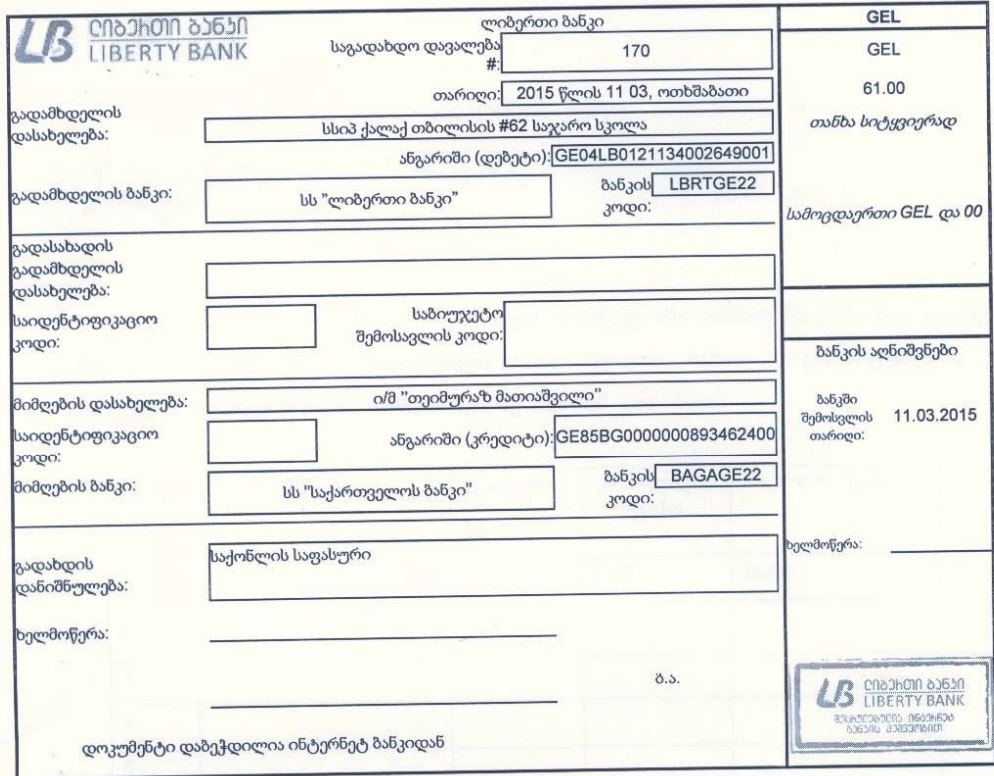 ლიბერთი ბანკი
LIBERTY BANK
ლიბერთი ბანკი
საგადახდო დავალება #: 170
თარიღი: 2015 წლის 11 03, ოთხშაბათი
გადამხდელის დასახელება: სსიპ ქალაქ თბილისის #62 საჯარო სკოლა
ანგარიში (დებეტი): GE04LB0121134002649001
გადამხდელის ბანკი: სს "ლიბერთი ბანკი" ბანკის კოდი: LBRTGE22
გადასახადის გადამხდელის დასახელება:
საიდენტიფიკაციო კოდი: საბიუჯეტო შემოსავლის კოდი:
მიმღების დასახელება: ი/მ "თეიმურაზ მათიაშვილი"
საიდენტიფიკაციო კოდი: ანგარიში (კრედიტი): GE85BG0000000893462400
მიმღების ბანკი: სს "საქართველოს ბანკი" ბანკის კოდი: BAGAGE22
გადახდის დანიშნულება: საქონლის საფასური
ხელმოწერა:
ბ.ა.
დოკუმენტი დაბეჭდილია ინტერნეტ ბანკიდან
GEL
GEL
61.00
თანხა სიტყვიერად
სამოცდაერთი GEL და 00
ბანკის აღნიშვნები
ბანკში შემოსვლის თარიღი: 11.03.2015
ხელმოწერა:
ლიბერთი ბანკი
LIBERTY BANK
შესრულებულია ინტერნეტ
ბანკის მეშვეობით